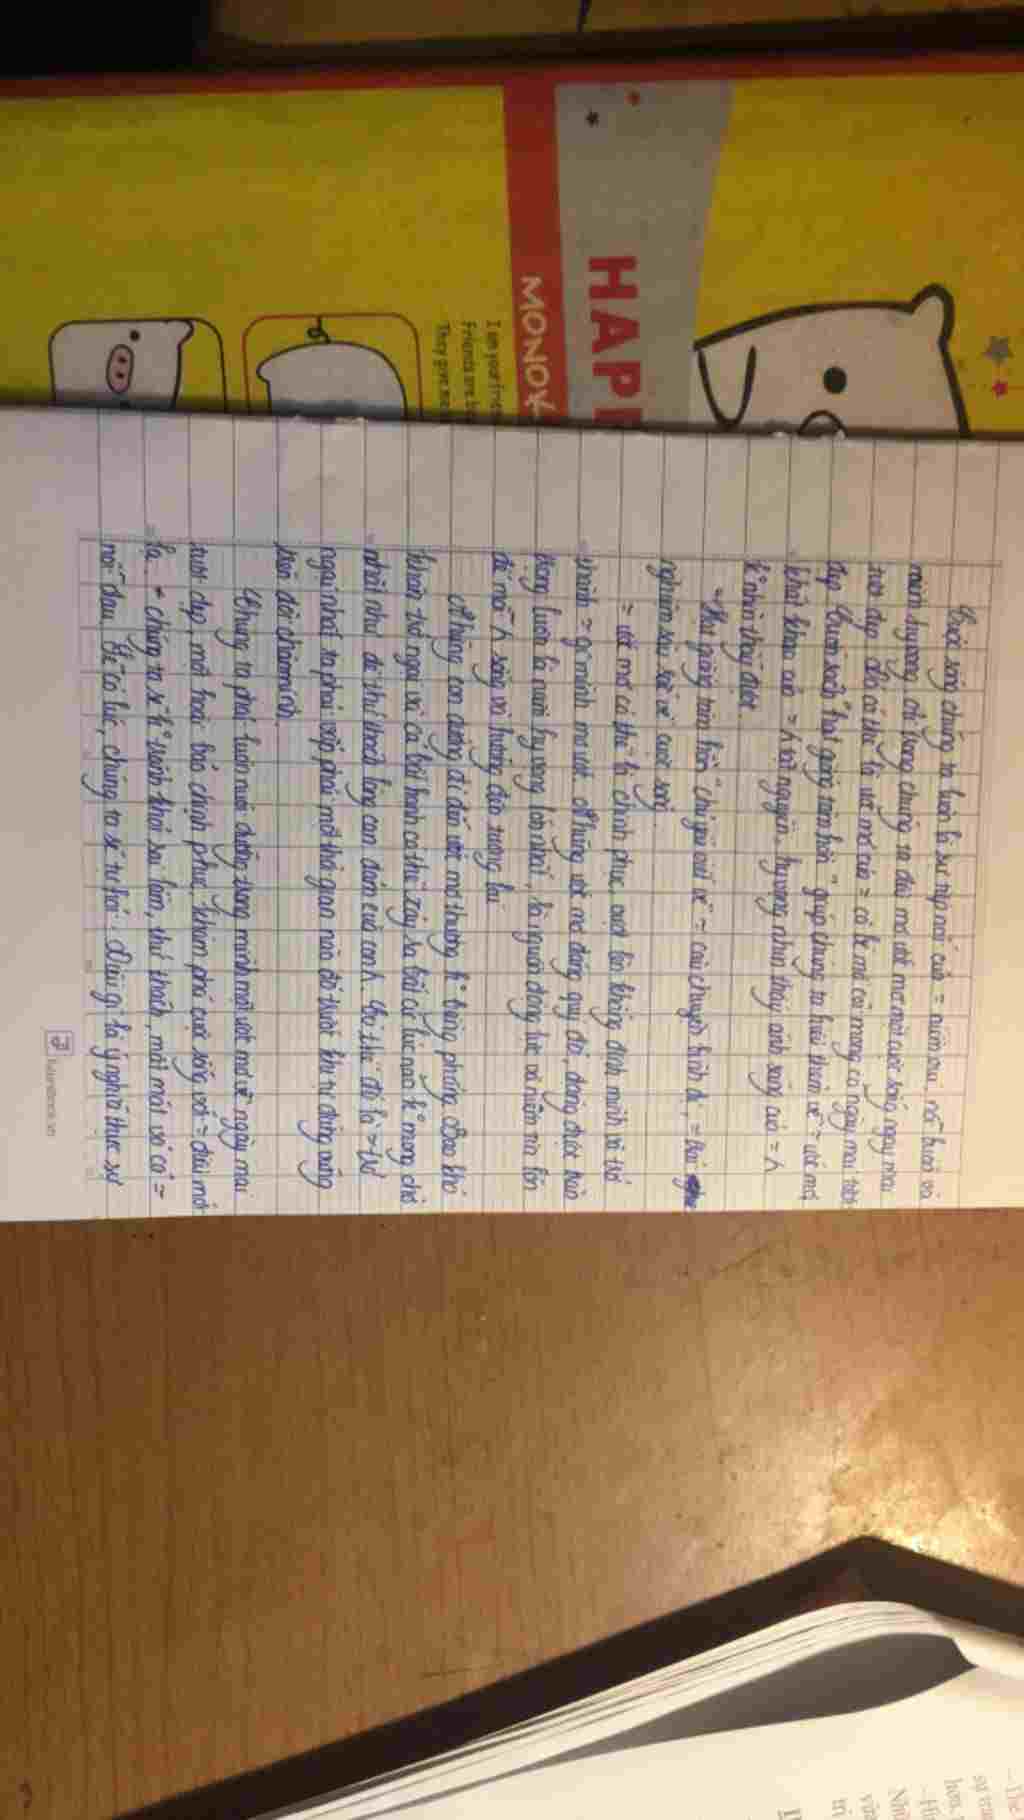 HAPP
MONOK
I am your frie
Friends are be
They give me
Cuộc sống chúng ta luôn là sự tiếp nối của = niềm vui, nỗi buồn và
niềm hy vọng, chỉ trong chúng ta đều mơ ước một cuộc sống ngày
tốt đẹp, đó có thể là ước mơ của = cô bé mồ côi mong có ngày mai tươi
đẹp. Cuốn sách "Hạt giống tâm hồn" giúp chúng ta hiểu thêm về = ước mơ,
khát khao của = h tật nguyền, hy vọng nhìn thấy ánh sáng của = h
k° nhìn thấy được.
"Hạt giống tâm hồn" chỉ gói viết về = câu chuyện bình dị, = bài
nghiệm sâu sắc về cuộc sống.
= ước mơ có thể là chinh phục, vượt lên khẳng định mình và trở
thành = gì mình mơ ước. Những ước mơ đáng quý đó, đang được
trong luôn là cuốn hy vọng lớn nhất, là nguồn động lực và niềm tin lớn
để mỗi h sống và hướng đến tương lai.
Những con đường đi đến ước mơ thường k° bằng phẳng. Bao khó
khăn, trở ngại và cả bất hạnh có thể xảy ra bất cứ lúc nào k° mong chờ
nhất như để thử thách lòng can đảm của con h. Vì thế đó là = trở
ngại nhất ta phải vấp phải một thời gian nào đó trước khi tự đứng vững
trên đôi chân mình.
Chúng ta phải luôn nuôi dưỡng trong mình một ước mơ về ngày mai
tươi đẹp, một hoài bão chinh phục, khám phá cuộc sống với = điều mới
lạ. chúng ta sẽ k° tránh khỏi sai lầm, thử thách, mất mát và cả =
nỗi đau. Để có lúc, chúng ta sẽ tự hỏi: Điều gì là ý nghĩa thực sự